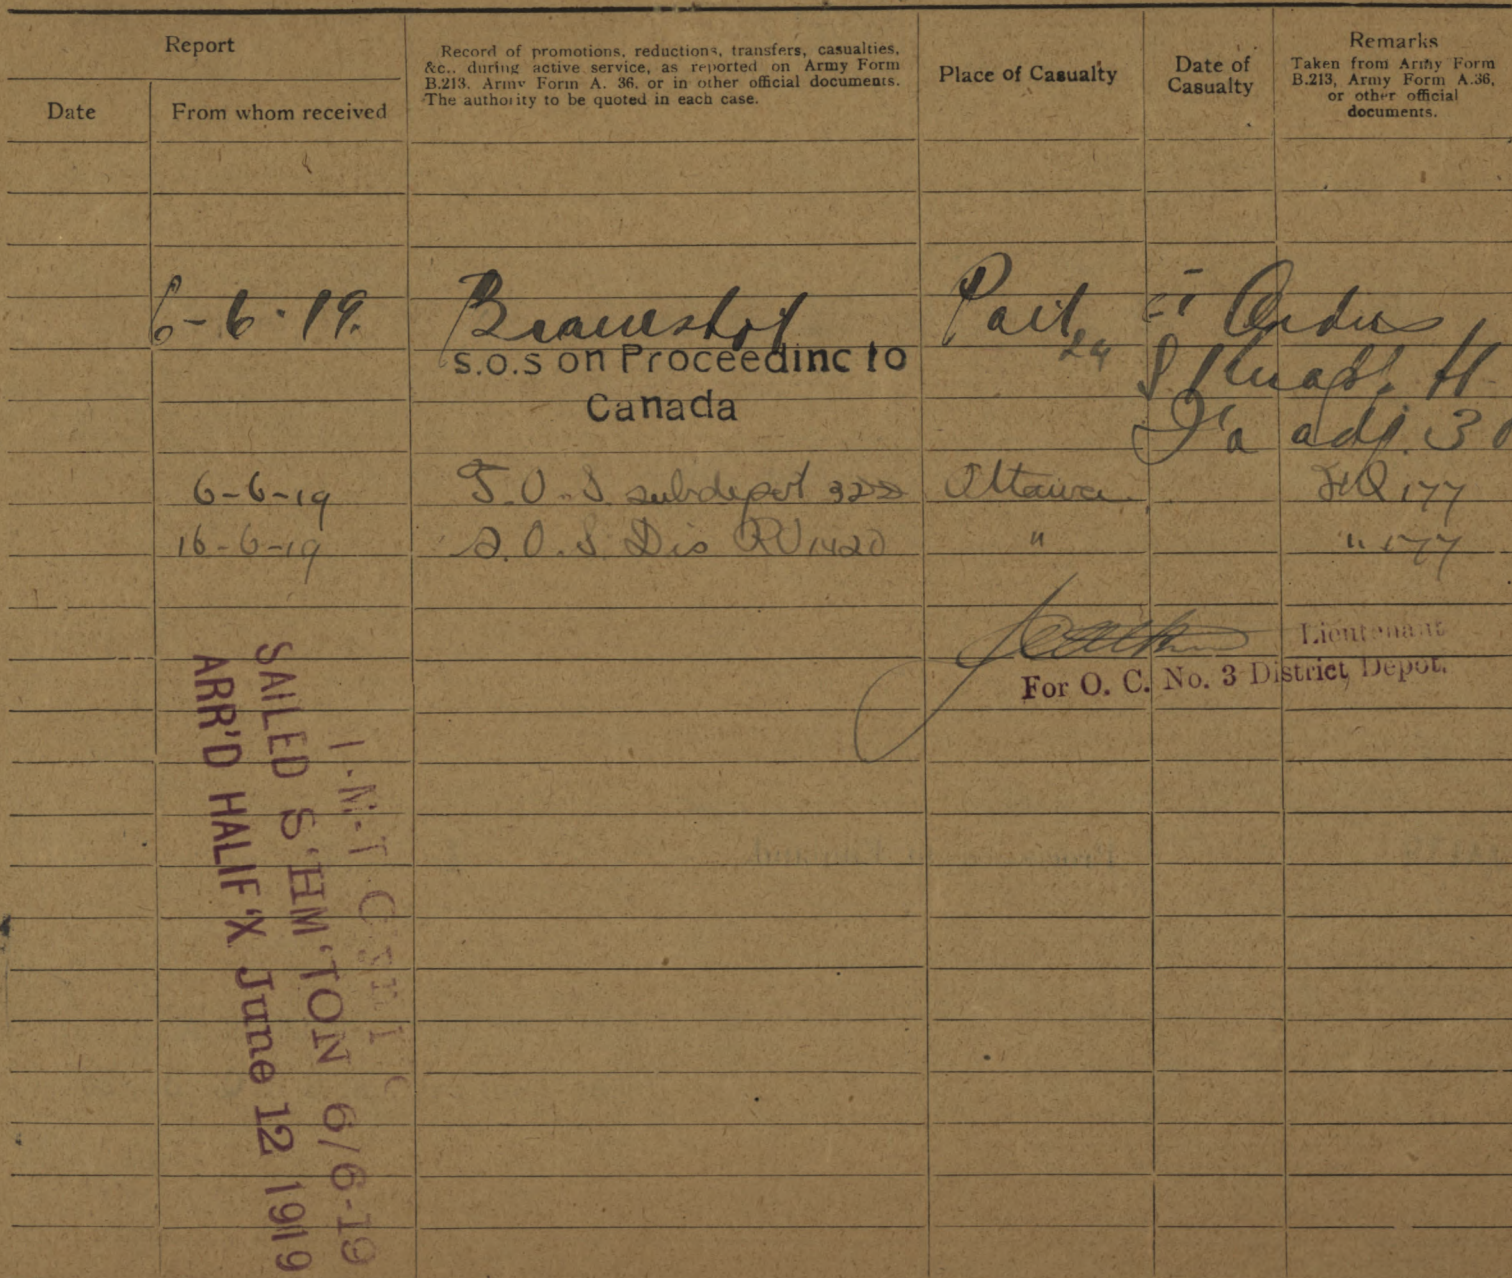 Report
Date
From whom received
Record of promotions, reductions, transfers, casualties,
&c., during active service, as reported on Army Form
B.213, Army Form A. 36, or in other official documents.
The authority to be quoted in each case.
Place of Casualty
Date of
Casualty
Remarks
Taken from Army Form
B.213, Army Form A.36,
or other official
documents.
6-6-19. Bramshot Part II Orders
s.o.s on Proceedinc to
Canada
adj.
6-6-19 T.O.S subdepot Ottawa 177
16-6-19 S.O.S Dis " " 177
Lieutenant
For O. C. No. 3 District Depot.
SAILED S'HM'TON 6/6-19
ARR'D HALIF'X June 12 1919